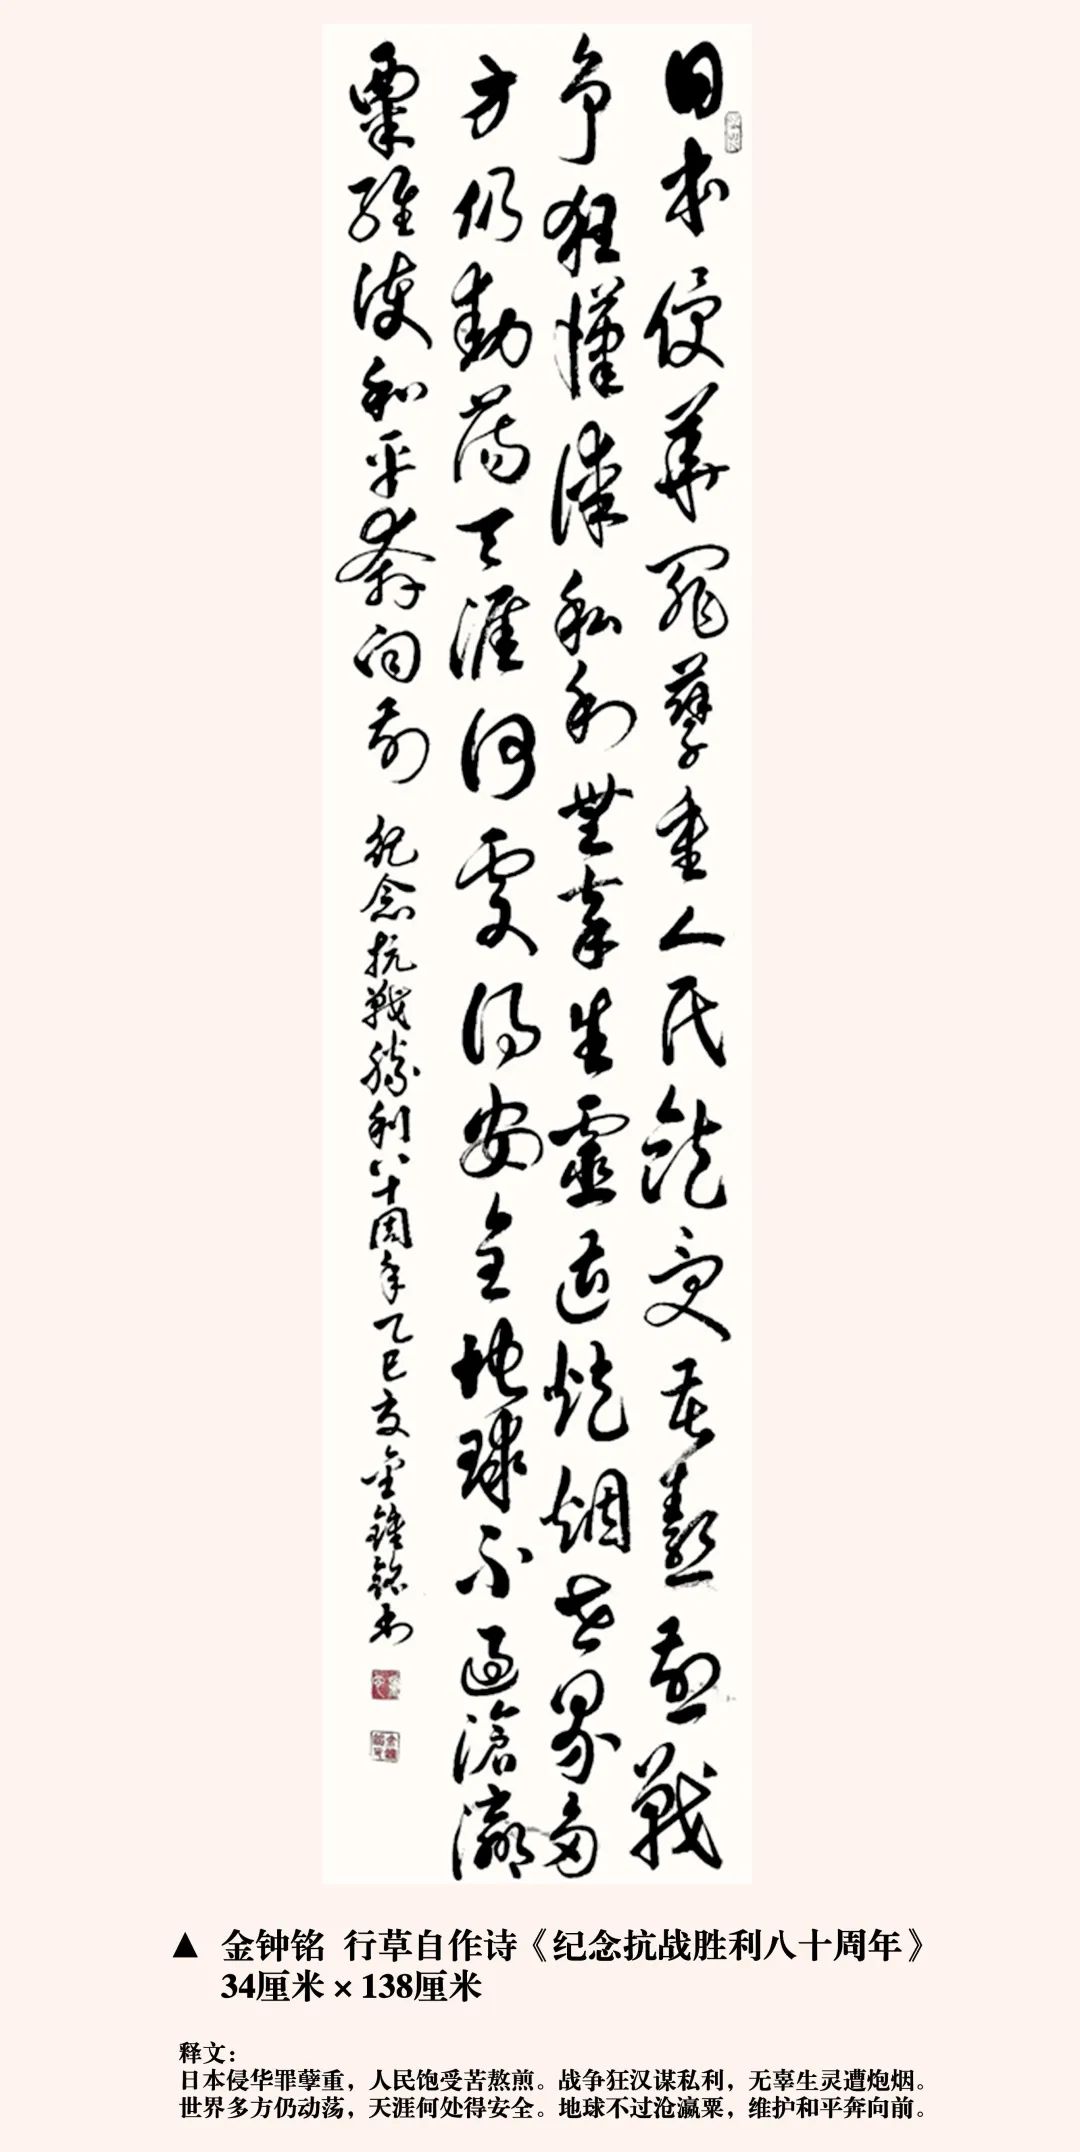 日本侵華罪孽重人民飽受苦熬煎戰
争狂漢謀私利無辜生靈遭炮烟世界多
方仍動蕩天涯何處得安全地球不過滄瀛
粟維護和平奔向前
紀念抗戰勝利八十周年乙巳夏金鍾銘書
▲ 金钟铭 行草自作诗《纪念抗战胜利八十周年》
34厘米 × 138厘米
释文：
日本侵华罪孽重，人民饱受苦熬煎。战争狂汉谋私利，无辜生灵遭炮烟。
世界多方仍动荡，天涯何处得安全。地球不过沧瀛粟，维护和平奔向前。